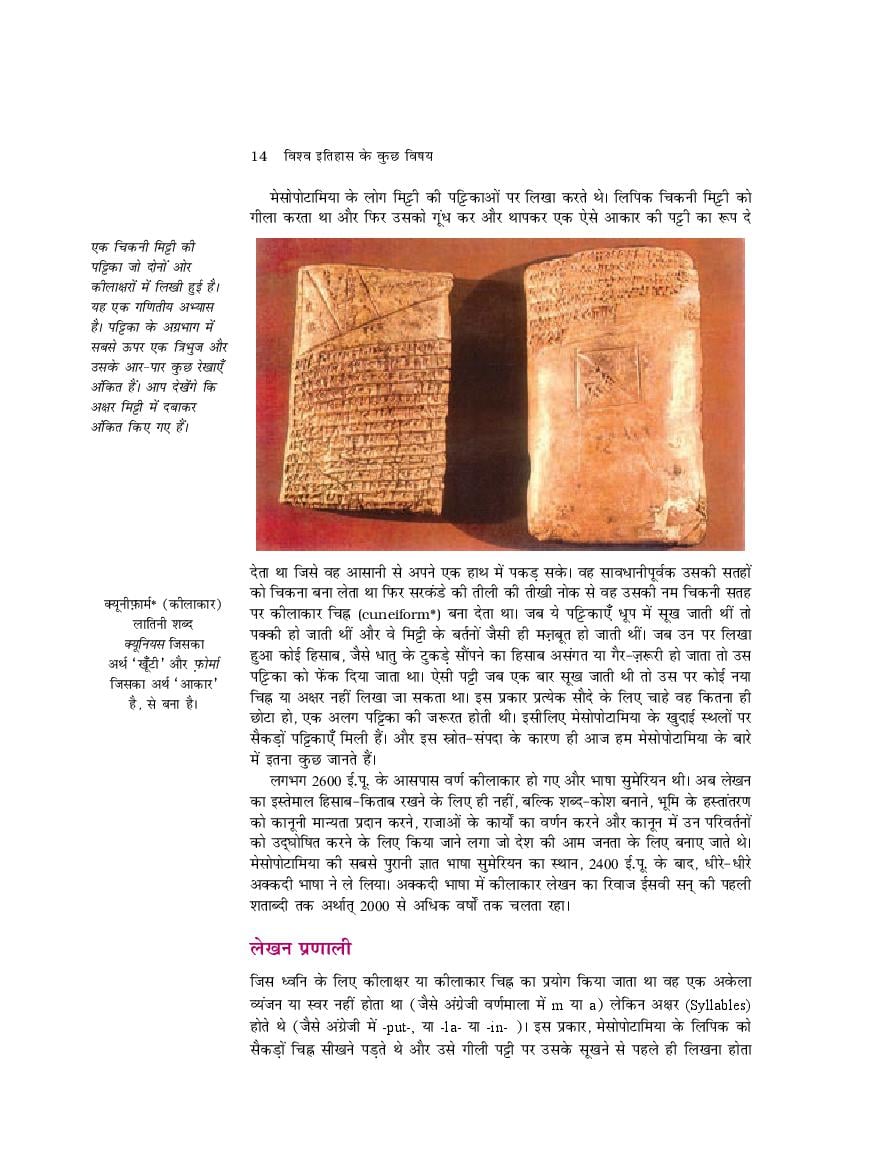 14 विश्व इतिहास के कुछ विषय
मेसोपोटामिया के लोग मिट्टी की पट्टिकाओं पर लिखा करते थे। लिपिक चिकनी मिट्टी को
गीला करता था और फिर उसको गूंध कर और थापकर एक ऐसे आकार की पट्टी का रूप दे
एक चिकनी मिट्टी की
पट्टिका जो दोनों ओर
कीलाक्षरों में लिखी हुई है।
यह एक गणितीय अभ्यास
है। पट्टिका के अग्रभाग में
सबसे ऊपर एक त्रिभुज और
उसके आर-पार कुछ रेखाएँ
अंकित हैं। आप देखेंगे कि
अक्षर मिट्टी में दबाकर
अंकित किए गए हैं।
देता था जिसे वह आसानी से अपने एक हाथ में पकड़ सके। वह सावधानीपूर्वक उसकी सतहों
को चिकना बना लेता था फिर सरकंडे की तीली की तीखी नोक से वह उसकी नम चिकनी सतह
पर कीलाकार चिह्न (cuneiform*) बना देता था। जब ये पट्टिकाएँ धूप में सूख जाती थीं तो
पक्की हो जाती थीं और वे मिट्टी के बर्तनों जैसी ही मज़बूत हो जाती थीं। जब उन पर लिखा
हुआ कोई हिसाब, जैसे धातु के टुकड़े सौंपने का हिसाब असंगत या गैर-ज़रूरी हो जाता तो उस
पट्टिका को फेंक दिया जाता था। ऐसी पट्टी जब एक बार सूख जाती थी तो उस पर कोई नया
चिह्न या अक्षर नहीं लिखा जा सकता था। इस प्रकार प्रत्येक सौदे के लिए चाहे वह कितना ही
छोटा हो, एक अलग पट्टिका की जरूरत होती थी। इसीलिए मेसोपोटामिया के खुदाई स्थलों पर
सैकड़ों पट्टिकाएँ मिली हैं। और इस स्रोत-संपदा के कारण ही आज हम मेसोपोटामिया के बारे
में इतना कुछ जानते हैं।
क्यूनीफ़ार्म* (कीलाकार)
लातिनी शब्द
क्यूनियस जिसका
अर्थ ‘खूँटी’ और फ़ोर्मा
जिसका अर्थ ‘आकार’
है, से बना है।
लगभग 2600 ई.पू. के आसपास वर्ण कीलाकार हो गए और भाषा सुमेरियन थी। अब लेखन
का इस्तेमाल हिसाब-किताब रखने के लिए ही नहीं, बल्कि शब्द-कोश बनाने, भूमि के हस्तांतरण
को कानूनी मान्यता प्रदान करने, राजाओं के कार्यों का वर्णन करने और कानून में उन परिवर्तनों
को उद्घोषित करने के लिए किया जाने लगा जो देश की आम जनता के लिए बनाए जाते थे।
मेसोपोटामिया की सबसे पुरानी ज्ञात भाषा सुमेरियन का स्थान, 2400 ई.पू. के बाद, धीरे-धीरे
अक्कदी भाषा ने ले लिया। अक्कदी भाषा में कीलाकार लेखन का रिवाज ईसवी सन् की पहली
शताब्दी तक अर्थात् 2000 से अधिक वर्षों तक चलता रहा।
लेखन प्रणाली
जिस ध्वनि के लिए कीलाक्षर या कीलाकार चिह्न का प्रयोग किया जाता था वह एक अकेला
व्यंजन या स्वर नहीं होता था (जैसे अंग्रेजी वर्णमाला में m या a) लेकिन अक्षर (Syllables)
होते थे (जैसे अंग्रेजी में -put-, या -la- या -in- )। इस प्रकार, मेसोपोटामिया के लिपिक को
सैकड़ों चिह्न सीखने पड़ते थे और उसे गीली पट्टी पर उसके सूखने से पहले ही लिखना होता